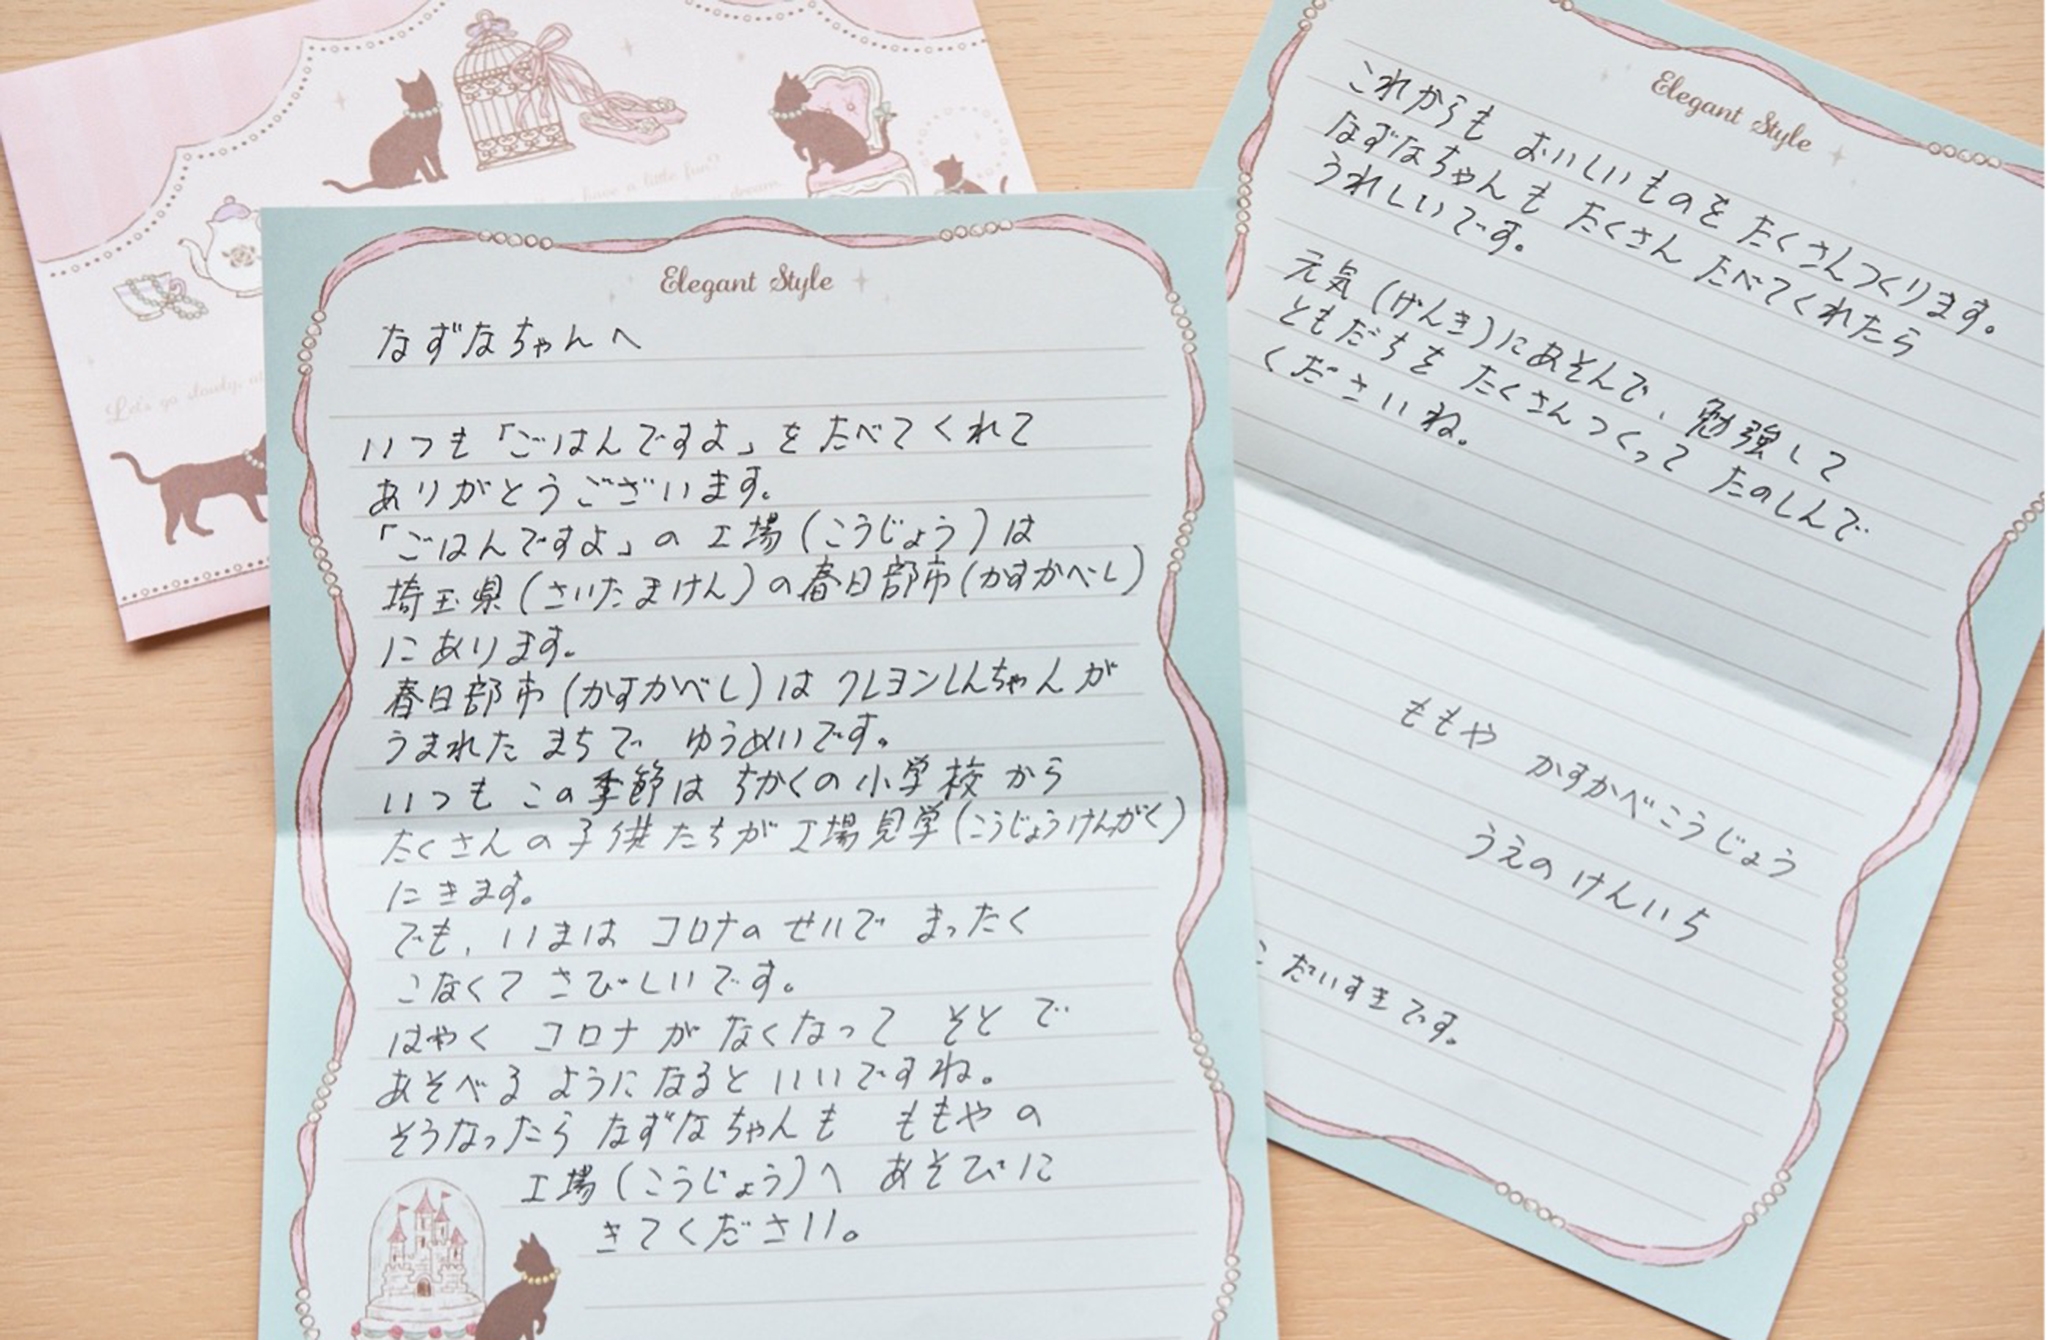 Elegant Style
なずなちゃんへ
いつも「ごはんですよ」をたべてくれて
ありがとうございます。
「ごはんですよ」の工場(こうじょう)は
埼玉県(さいたまけん)の春日部市(かすかべし)
にあります。
春日部市(かすかべし)はクレヨンしんちゃんが
うまれたまちで ゆうめいです。
いつも この季節は ちかくの小学校から
たくさんの子供たちが工場見学(こうじょうけんがく)
にきます。
でも、いまは コロナのせいで まったく
こなくて さびしいです。
はやく コロナがなくなって そとで
あそべるようになるといいですね。
そうなったら なずなちゃんも ももやの
工場(こうじょう)へ あそびに
きてください。
Elegant Style
これからも おいしいものを たくさんつくります。
なずなちゃんも たくさん たべてくれたら
うれしいです。
元気(げんき)にあそんで、勉強して
ともだちを たくさんつくって たのしんで
くださいね。
ももや かすかべこうじょう
うえの けんいち
だいすきです。
have a little fun?
dream
Let's go slowly,